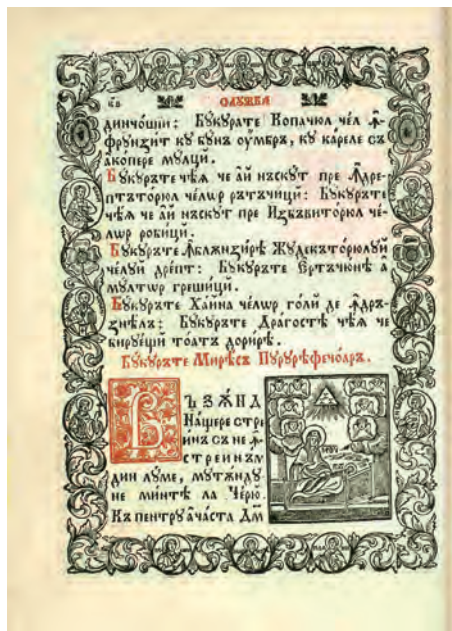 СЛꙊЖБА
динчѡшїи: Бꙋкꙋрате Копачюл чел ꙟ҆-
фрꙋнзит кꙋ бꙋнъ оу҆мбръ, кꙋ кареле съ
акопере мꙋлци.
Бꙋкꙋръте чѣѧ че ай нъскꙋт пре ꙟдре-
птъторюл челѡр рътъчици: Бꙋкꙋръте
чѣѧ че ай нъскꙋт пре ИзБъвиторюл че-
лѡр робици.
Бꙋкꙋръте ꙟблѫнзирѣ Жꙋдекъторюлꙋй
челꙋй дрепт: Бꙋкꙋръте Ертъчюнѣ а
мꙋлтѡр грешици.
Бꙋкꙋръте Хайна челѡр голи де ꙟдръ-
знѣлъ: Бꙋкꙋръте Драгостѣ чѣѧ че
бирꙋещй тоатъ дорирѣ.
Бꙋкꙋръте Мирѣсъ Пꙋрꙋрѣфечоаръ.
Въ зѫнд
Нащере стре
инъ съ не ꙟ
стреинъм
дин лꙋме, мꙋтѫндꙋ
не минтѣ ла Черю.
Къ пентрꙋ ачаста Дм